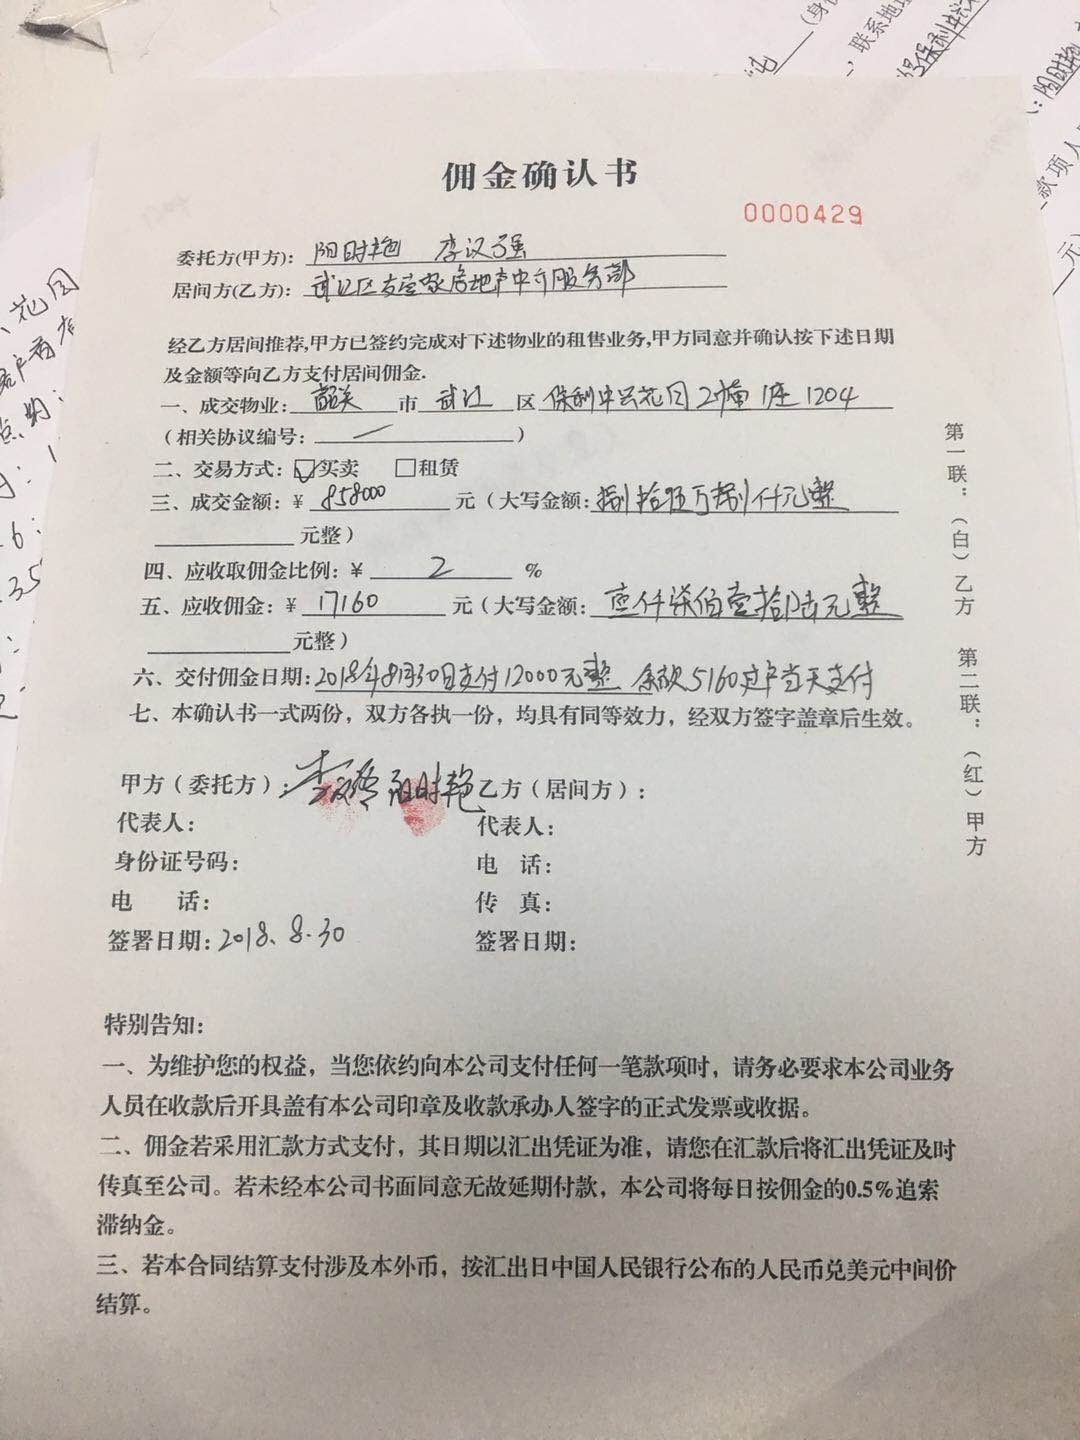 佣金确认书
0000429
委托方(甲方): 阳时艳 李汉强
居间方(乙方): 武江区友壹家房地产中介服务部
经乙方居间推荐,甲方已签约完成对下述物业的租售业务,甲方同意并确认按下述日期
及金额等向乙方支付居间佣金.
一、成交物业: 韶关 市 武江 区 保利中央花园2幢1座1204
(相关协议编号: )
二、交易方式: 买卖 租赁
三、成交金额:¥ 858000 元(大写金额: 捌拾伍万捌仟元整
元整)
四、应收取佣金比例:¥ 2 %
五、应收佣金:¥ 17160 元(大写金额: 仟柒佰壹拾陆元整
元整)
六、交付佣金日期:2018年8月30日支付12000元整 余款5160过户当天支付
七、本确认书一式两份，双方各执一份，均具有同等效力，经双方签字盖章后生效。
甲方(委托方): 李汉强 阳时艳 乙方(居间方):
代表人: 代表人:
身份证号码: 电 话:
电 话: 传 真:
签署日期:2018.8.30 签署日期:
第一联:(白)乙方 第二联:(红)甲方
特别告知:
一、为维护您的权益，当您依约向本公司支付任何一笔款项时，请务必要求本公司业务
人员在收款后开具盖有本公司印章及收款承办人签字的正式发票或收据。
二、佣金若采用汇款方式支付，其日期以汇出凭证为准，请您在汇款后将汇出凭证及时
传真至公司。若未经本公司书面同意无故延期付款，本公司将每日按佣金的0.5%追索
滞纳金。
三、若本合同结算支付涉及本外币，按汇出日中国人民银行公布的人民币兑美元中间价
结算。